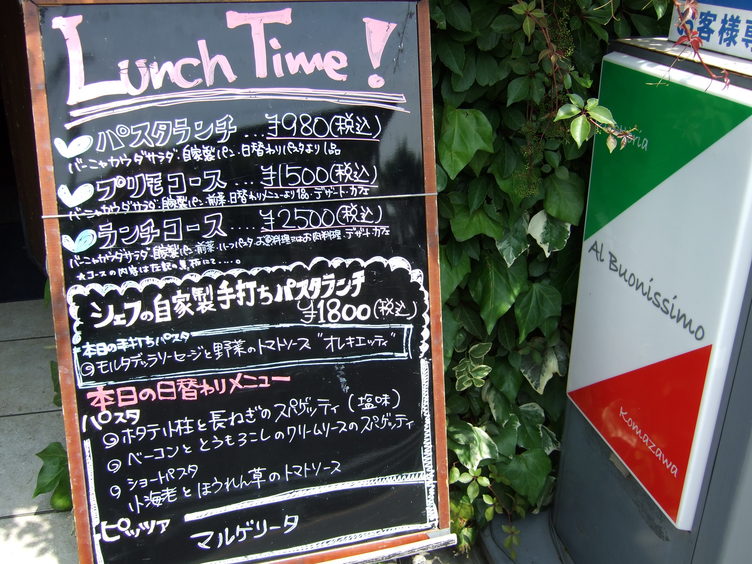 Lunch Time!
パスタランチ…¥980(税込)
バーニャカウダサラダ・自家製パン・日替わりパスタより1品
プリモコース…¥1500(税込)
バーニャカウダサラダ・自家製パン・前菜・日替わりメニューより1品・デザート・カフェ
ランチコース…¥2500(税込)
バーニャカウダサラダ・自家製パン・前菜・ハーフパスタ・お魚料理又はお肉料理・デザート・カフェ
★コースの内容は左記の黒板にて…。
シェフの自家製手打ちパスタランチ
¥1800(税込)
本日の手打ちパスタ
モルタデッラソーセージと野菜のトマトソース "オレキエッティ"
本日の日替わりメニュー
パスタ
ホタテ小柱と長ねぎのスパゲッティ(塩味)
ベーコンととうもろこしのクリームソースのスパゲッティ
ショートパスタ
小海老とほうれん草のトマトソース
ピッツァ
マルゲリータ
お客様専
Al Buonissimo
Komazawa